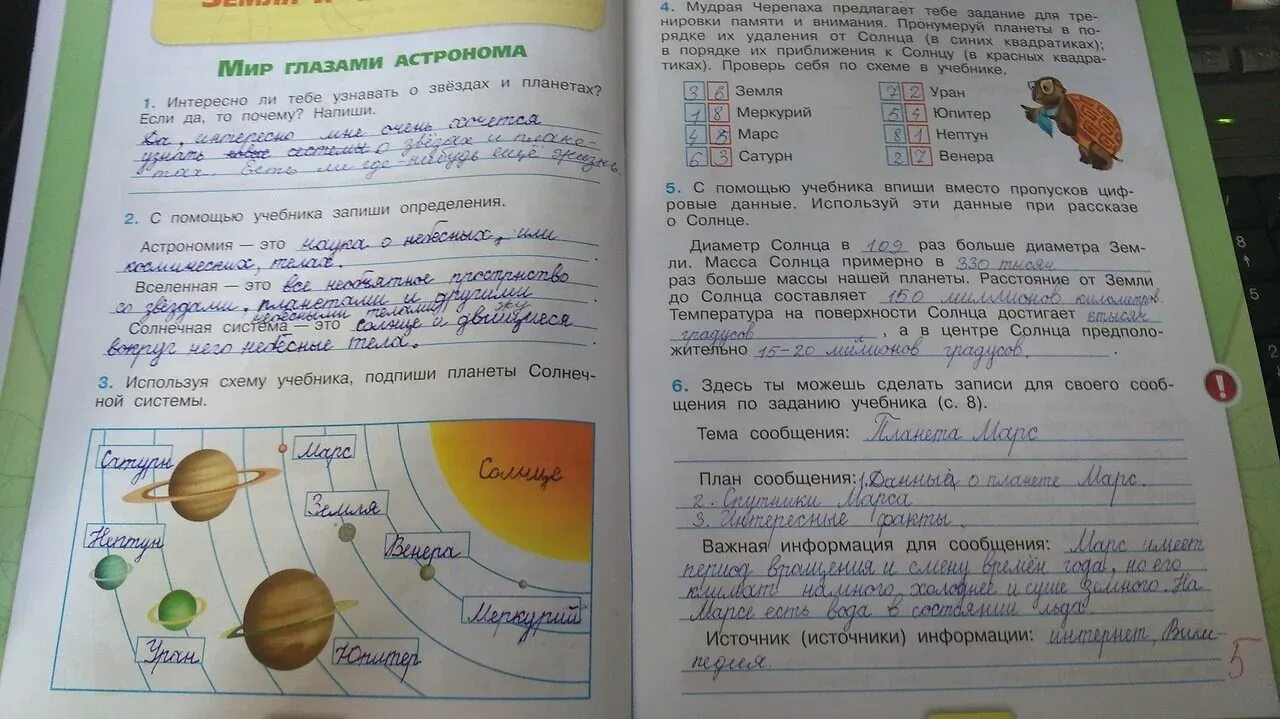 МИР ГЛАЗАМИ АСТРОНОМА
1. Интересно ли тебе узнавать о звёздах и планетах?
Если да, то почему? Напиши.
Да, интересно мне очень хочется
узнать системы о звёздах и плане-
тах. Есть ли где-нибудь ещё жизнь.
2. С помощью учебника запиши определения.
Астрономия — это наука о небесных, или
космических, телах.
Вселенная — это все необъятное прострнство
со звёздами, планетами и другими
небесными телами
Солнечная система — это солнце и движущиеся
вокруг него небесные тела.
3. Используя схему учебника, подпиши планеты Солнеч-
ной системы.
Сатурн
Марс
Солнце
Земля
Нептун
Венера
Меркурий
Уран
Юпитер
4. Мудрая Черепаха предлагает тебе задание для тре-
нировки памяти и внимания. Пронумеруй планеты в по-
рядке их удаления от Солнца (в синих квадратиках);
в порядке их приближения к Солнцу (в красных квадра-
тиках). Проверь себя по схеме в учебнике.
3 6 Земля 7 2 Уран
1 8 Меркурий 5 4 Юпитер
4 5 Марс 8 1 Нептун
6 3 Сатурн 2 7 Венера
5. С помощью учебника впиши вместо пропусков циф-
ровые данные. Используй эти данные при рассказе
о Солнце.
Диаметр Солнца в 109 раз больше диаметра Зем-
ли. Масса Солнца примерно в 330 тысяч
раз больше массы нашей планеты. Расстояние от Земли
до Солнца составляет 150 миллионов километров.
Температура на поверхности Солнца достигает 6тысяч
градусов, а в центре Солнца предполо-
жительно 15-20 милионов градусов.
6. Здесь ты можешь сделать записи для своего сооб-
щения по заданию учебника (с. 8).
Тема сообщения: Планета Марс
План сообщения: 1. Данные о планете Марс.
2. Спутники Марса
3. Интересные факты.
Важная информация для сообщения: Марс имеет
период вращения и смену времён года, но его
климат намного холоднее и суше земного. На
Марсе есть вода в состоянии льда.
Источник (источники) информации: интернет, Вики-
педия.
5